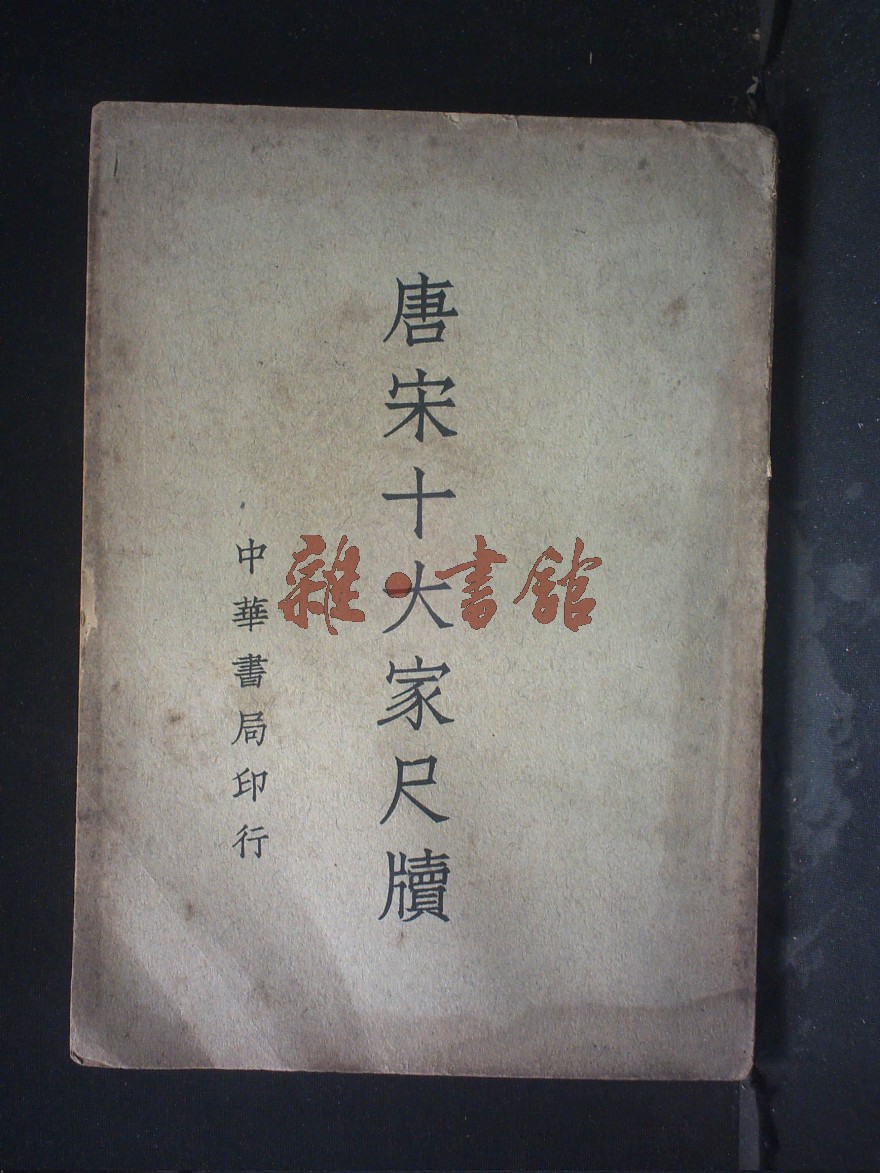 唐宋十大家尺牘
中華書局印行
雜·書館